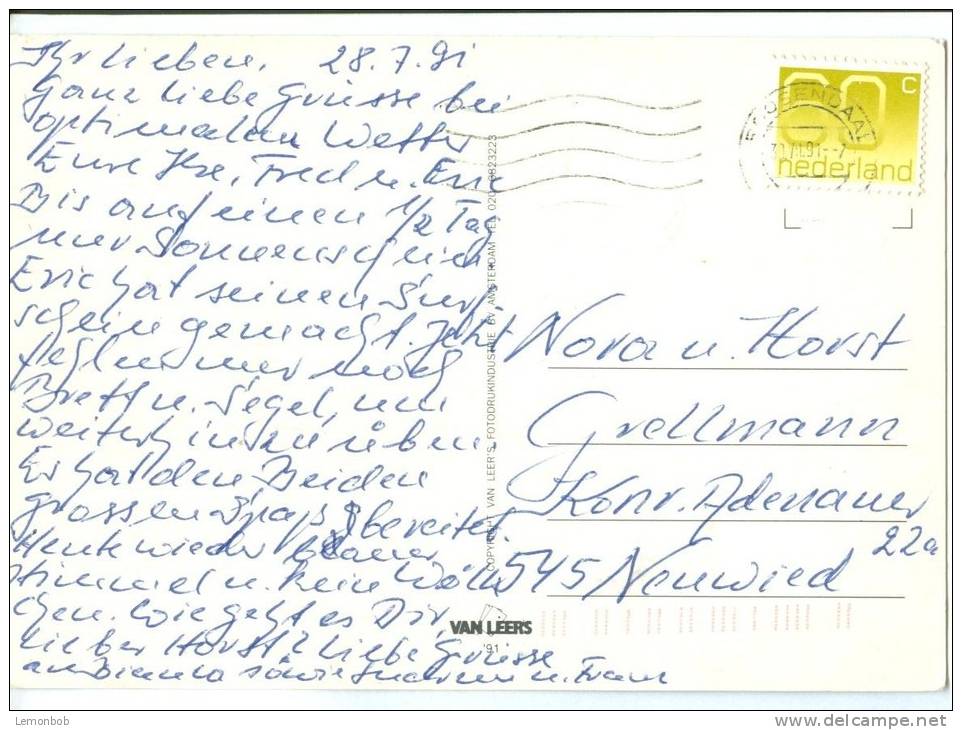 Ihr Lieben, 28.7.91
Ganz liebe Grüsse bei
optimalem Wetter
Eure Ilse, Fred u. Eric
Bis auf einen 1/2 Tag
nur Sonnenschein
Eric hat seinen Surf-
schein gemacht. Jetzt
fehlt nur noch
Brett u. Segel, um
weiterhin zu üben.
Es hat den Beiden
grossen Spaß bereitet.
Heute wieder blauer
Himmel u. kein Wölk-
chen. Wie geht es Dir,
lieber Horst? Liebe Grüsse
an Bianca sowie u. Frank
COPYRIGHT VAN LEER'S FOTODRUKINDUSTRIE BV AMSTERDAM TEL 020-
VAN LEERS
'91
60 c
nederland
Nora u. Horst
Grellmann
Konr. Adenauer
22a
545 Neuwied
Lemonbob
http://www.delcampe.net